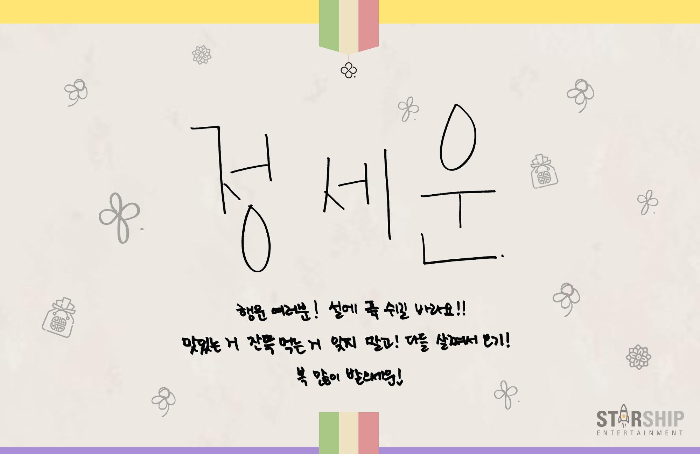 정세운.
행운 여러분! 설에 푹 쉬길 바라요!!
맛있는 거 잔뜩 먹는 거 잊지 말고! 다들 살쪄서 오기!
복 많이 받으세운!
STARSHIP
ENTERTAINMENT